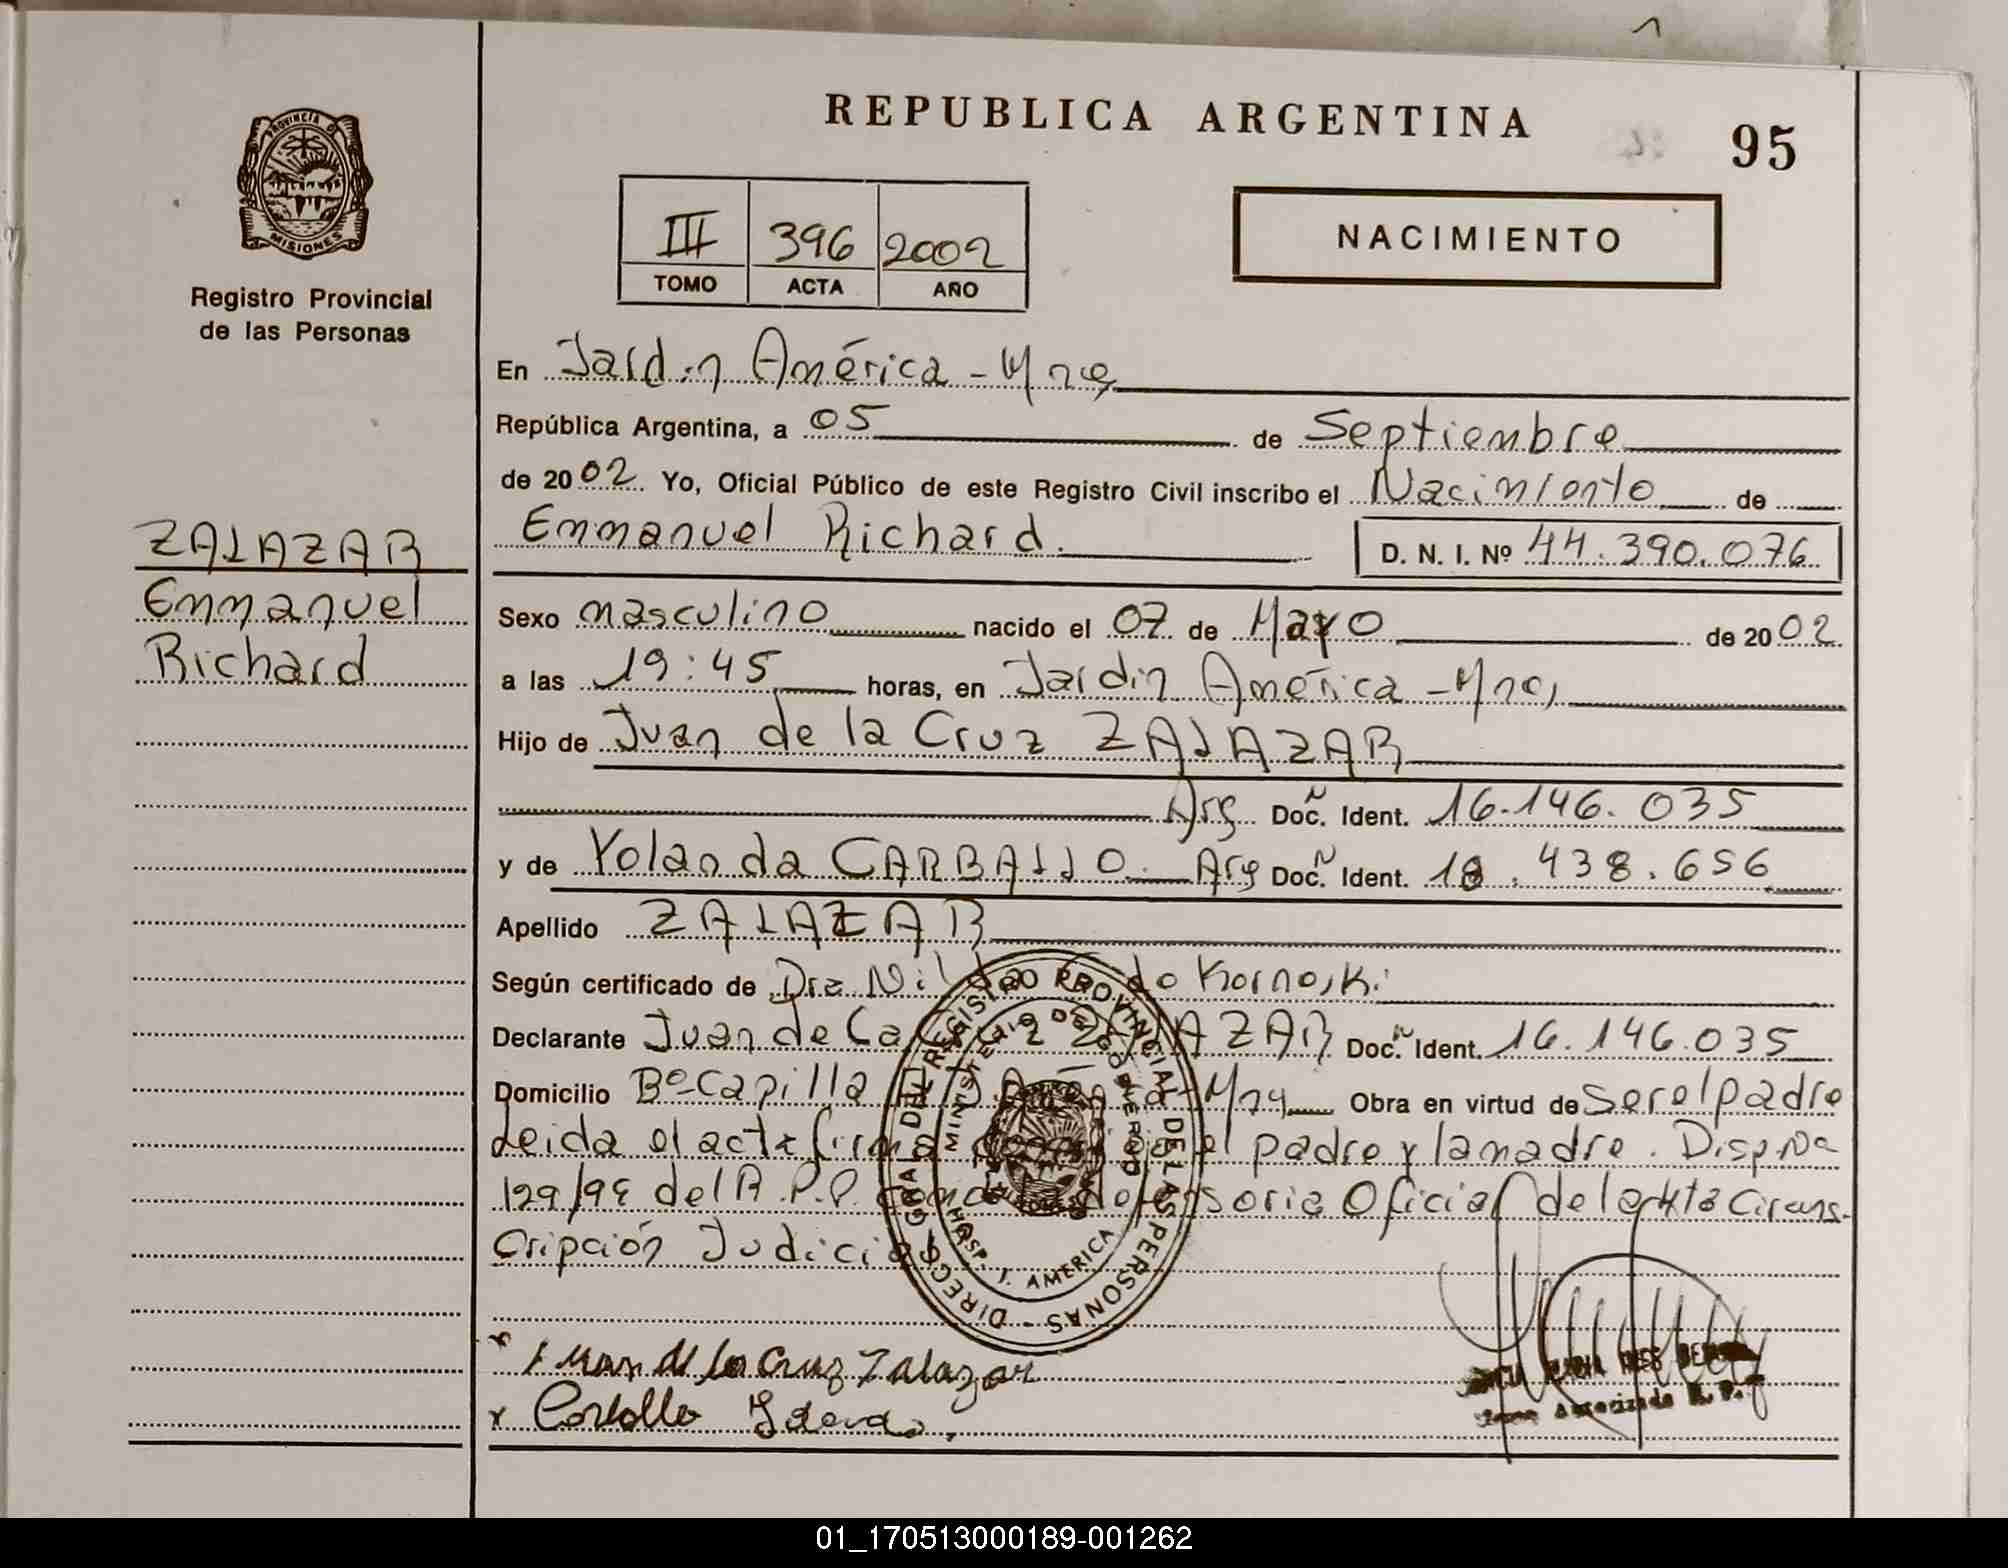 REPUBLICA ARGENTINA
95
PROVINCIA DE
MISIONES
Registro Provincial
de las Personas
III 396 2002
TOMO ACTA AÑO
NACIMIENTO
En Jardin América - Mnes
República Argentina, a 05 de Septiembre
de 2002 Yo, Oficial Público de este Registro Civil inscribo el Nacimiento de
Emmanuel Richard. D. N. I. Nº 44.390.076
ZALAZAR
Emmanuel
Richard
Sexo masculino nacido el 07 de Mayo de 2002
a las 19:45 horas, en Jardin América - Mnes
Hijo de Juan de la Cruz ZALAZAR
Arg Doc. Ident. 16.146.035
y de Yolanda CARBALLO. Arg Doc. Ident. 18.438.656
Apellido ZALAZAR
Según certificado de Dra
Declarante Juan de La Cruz ZALAZAR Doc. Ident. 16.146.035
Domicilio Bº Capilla J. América - Mnes Obra en virtud de ser el padre
Leida el acta firma el padre y la madre. Disp Nº
129/98 del R.P.P. Defensoria Oficial de la 4ta Circuns-
cripción Judicial
DIRECC. GRAL. DEL REGISTRO PROVINCIAL DE LAS PERSONAS -
MINISTERIO DE GOBIERNO
HOSP. J. AMERICA
x Juan de la Cruz Zalazar
x
Autorizada R. P.
01_170513000189-001262